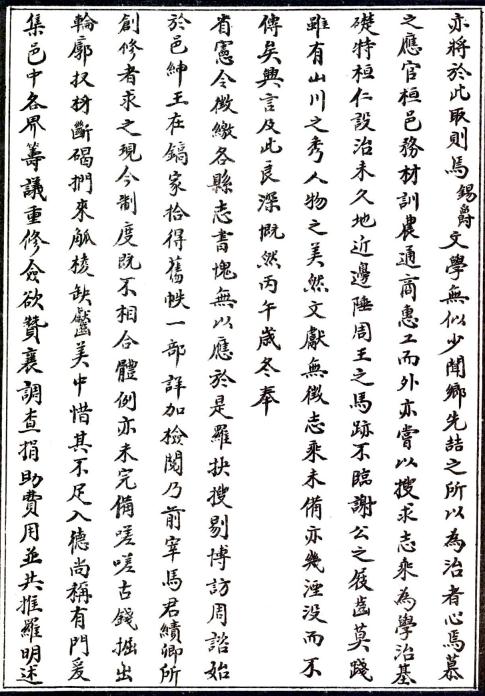 亦將於此取則焉錫爵文學無似少聞鄉先喆之所以為治者心焉慕
之應官桓邑務材訓農通商惠工而外亦嘗以搜求志乘為學治基
礎特桓仁設治未久地近邊陲周王之馬跡不臨謝公之屐齒莫踐
雖有山川之秀人物之美然文獻無徵志乘未備亦幾湮没而不
傳矣興言及此良深慨然丙午歲冬奉
省憲令徵繳各縣志書愧無以應於是羅抉搜剔博訪周諮始
於邑紳王在鎬家拾得舊帙一部詳加檢閱乃前宰馬君績卿所
創修者求之現今制度既不相合體例亦未完備嗟嗟古錢掘出
輪廓扠材斷碣捫來觚棱缺齾美中惜其不足入德尚稱有門爰
集邑中各界籌議重修僉欲贊襄調查捐助費用並共推羅明述